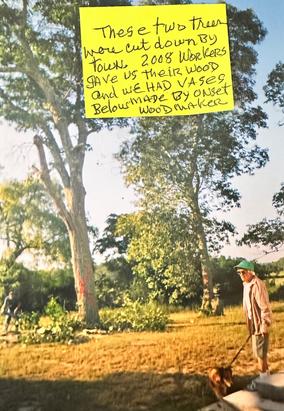 These two trees
were cut down By
town. 2008 Workers
gave us their wood
and we had vases
Below made by onset
woodmaker